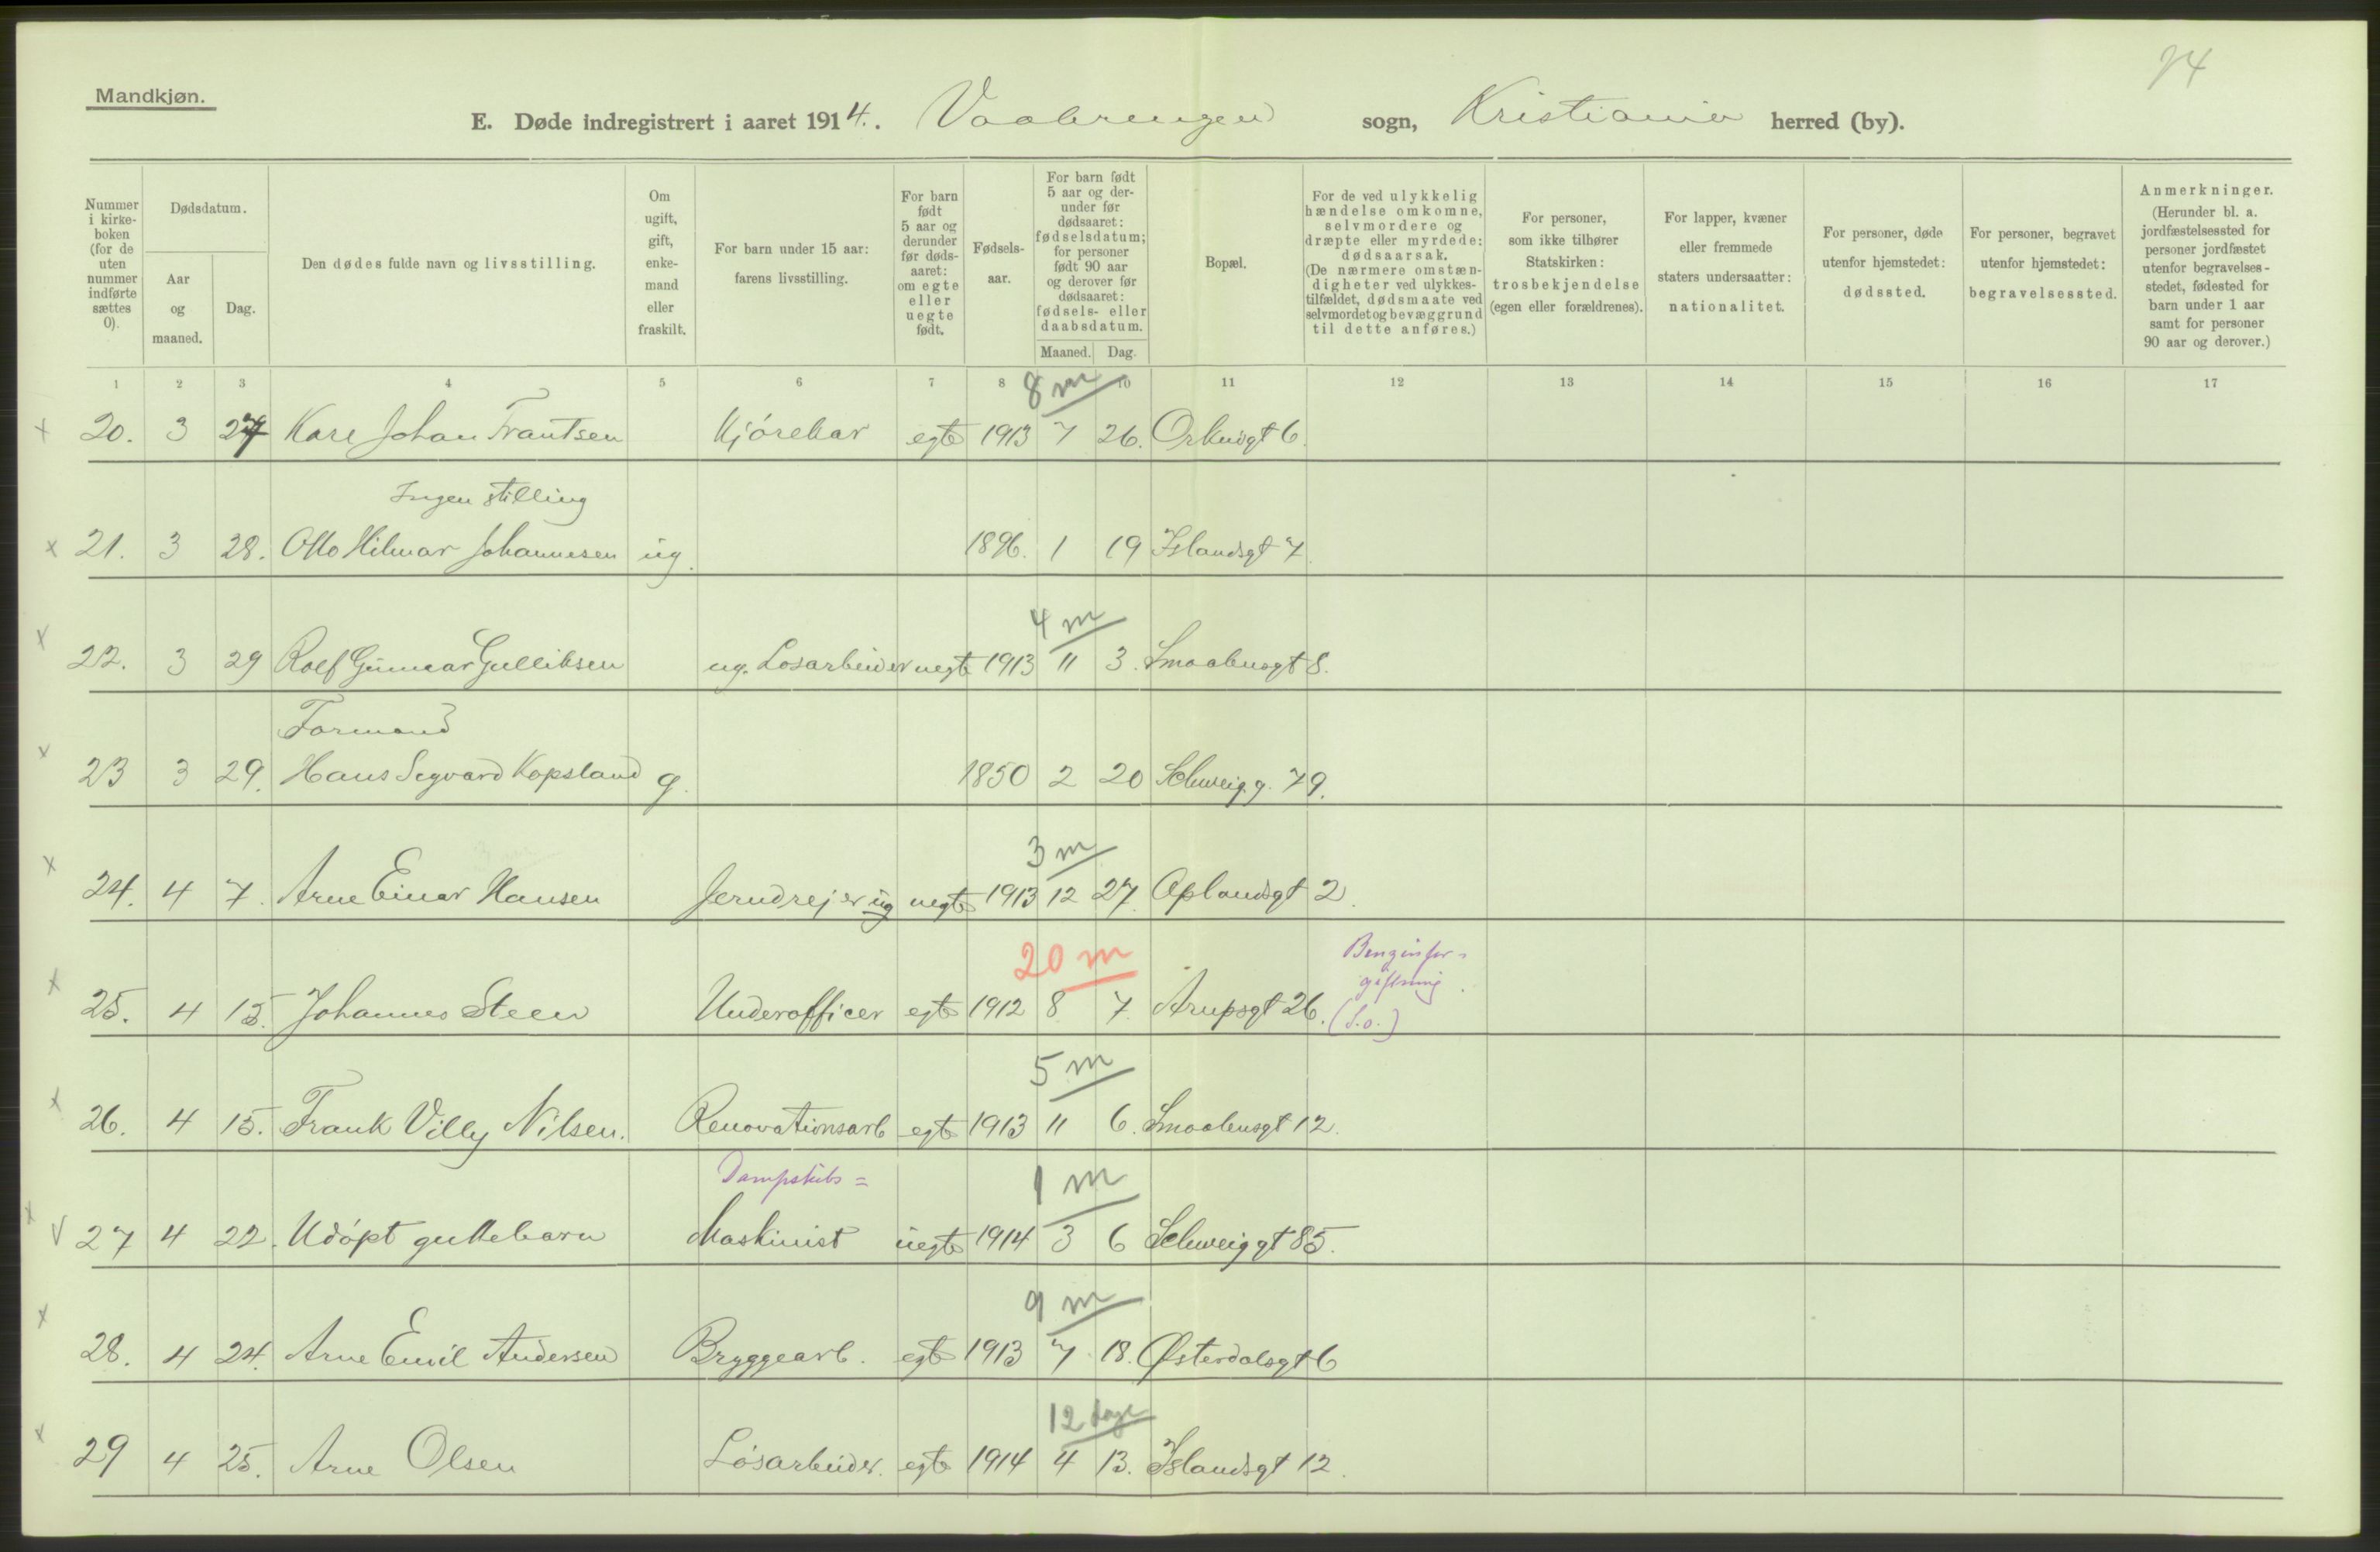 74
Mandkjøn.
E. Døde indregistrert i aaret 1914. Vaalerengen sogn, Kristiania herred (by).
Nummer i kirkeboken (for de uten nummer indførte sættes 0).
Dødsdatum.
Aar og maaned.
Dag.
Den dødes fulde navn og livsstilling.
Om ugift, gift, enkemand eller fraskilt.
For barn under 15 aar: farens livsstilling.
For barn født 5 aar og derunder før dødsaaret: om egte eller uegte født.
Fødselsaar.
For barn født 5 aar og derunder før dødsaaret: fødselsdatum; for personer født 90 aar og derover før dødsaaret: fødsels- eller daabsdatum.
Maaned. Dag.
Bopæl.
For de ved ulykkelig hændelse omkomne, selvmordere og dræpte eller myrdede: dødsaarsak. (De nærmere omstændigheter ved ulykkestilfældet, dødsmaate ved selvmordet og bevæggrund til dette anføres.)
For personer, som ikke tilhører Statskirken: trosbekjendelse (egen eller forældrenes).
For lapper, kvæner eller fremmede staters undersaatter: nationalitet.
For personer, døde utenfor hjemstedet: dødssted.
For personer, begravet utenfor hjemstedet: begravelsessted.
Anmerkninger. (Herunder bl. a. jordfæstelsessted for personer jordfæstet utenfor begravelsesstedet, fødested for barn under 1 aar samt for personer 90 aar og derover.)
1 2 3 4 5 6 7 8 10 11 12 13 14 15 16 17
8 m
x 20. 3 27 Kare Johan Frantsen Kjørekar egte 1913 7 26. Orknøgt 6.
Ingen stilling
x 21. 3 28. Otto Hilmar Johannesen ug. 1896. 1 19 Islandsgt 7.
4 m
x 22. 3 29 Rolf Gunnar Gulliksen ug. Løsarbeider uegte 1913 11 3. Smaalensgt 8.
Formand
x 23 3 29. Hans Segvard Kopsland g. 1850 2 20 Schweigg. 79.
3 m
x 24. 4 7. Arne Einar Hansen Jerndrejer ug uegte 1913 12 27. Oplandsgt 2.
20 m Benzinfor-
giftning.
x 25. 4 15. Johannes Steen Underofficer egte 1912 8 7. Arupsgt 26. (S.o.)
5 m
x 26. 4 15. Frank Villy Nilsen. Renovationsarb egte 1913 11 6. Smaalensgt 12.
Dampskibs= 1 m
x V 27 4 22. Udøpt guttebarn Maskinist uegte 1914 3 6 Schweiggt 85.
9 m
x 28. 4 24. Arne Emil Andersen Bryggearb. egte 1913 7 18. Østerdalsgt 6
12 dage
x 29 4 25. Arne Olsen Løsarbeider. egte 1914 4 13. Islandsgt 12.